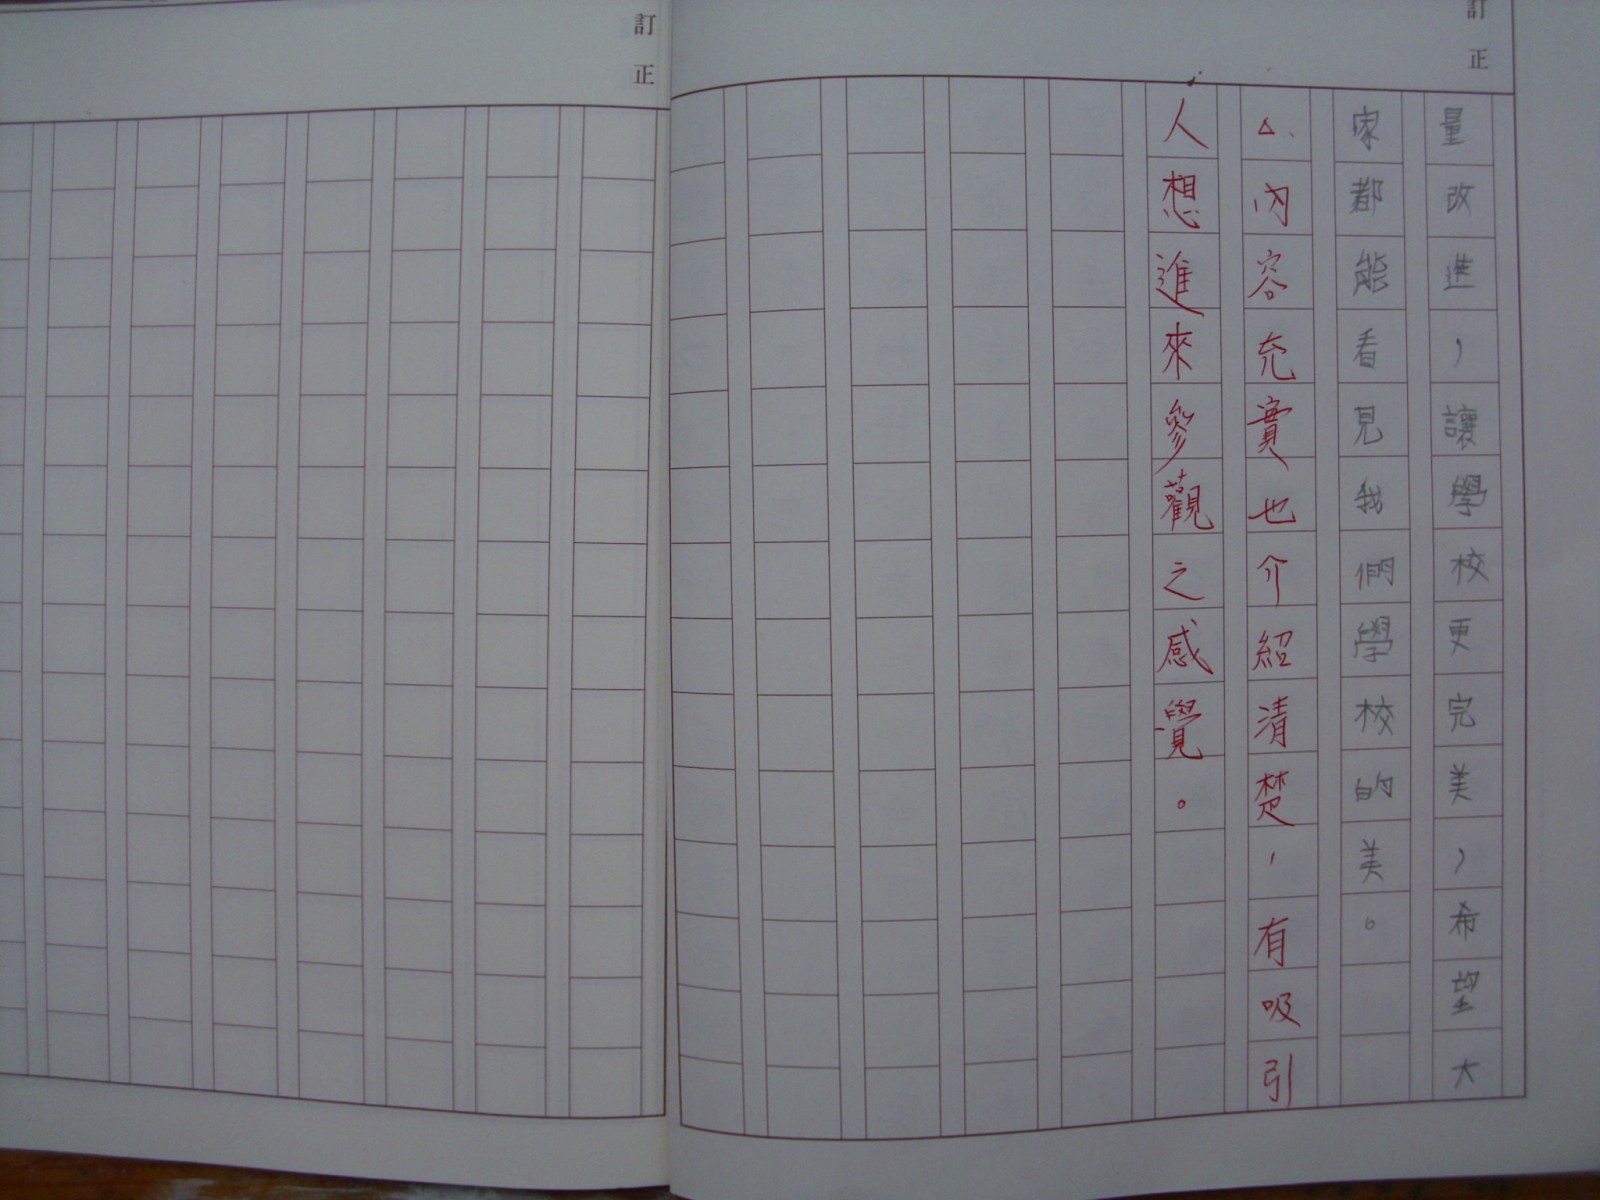 訂正
量改進，讓學校更完美，希望大
家都能看見我們學校的美。
△、內容充實也介紹清楚，有吸引
人想進來參觀之感覺。
訂正